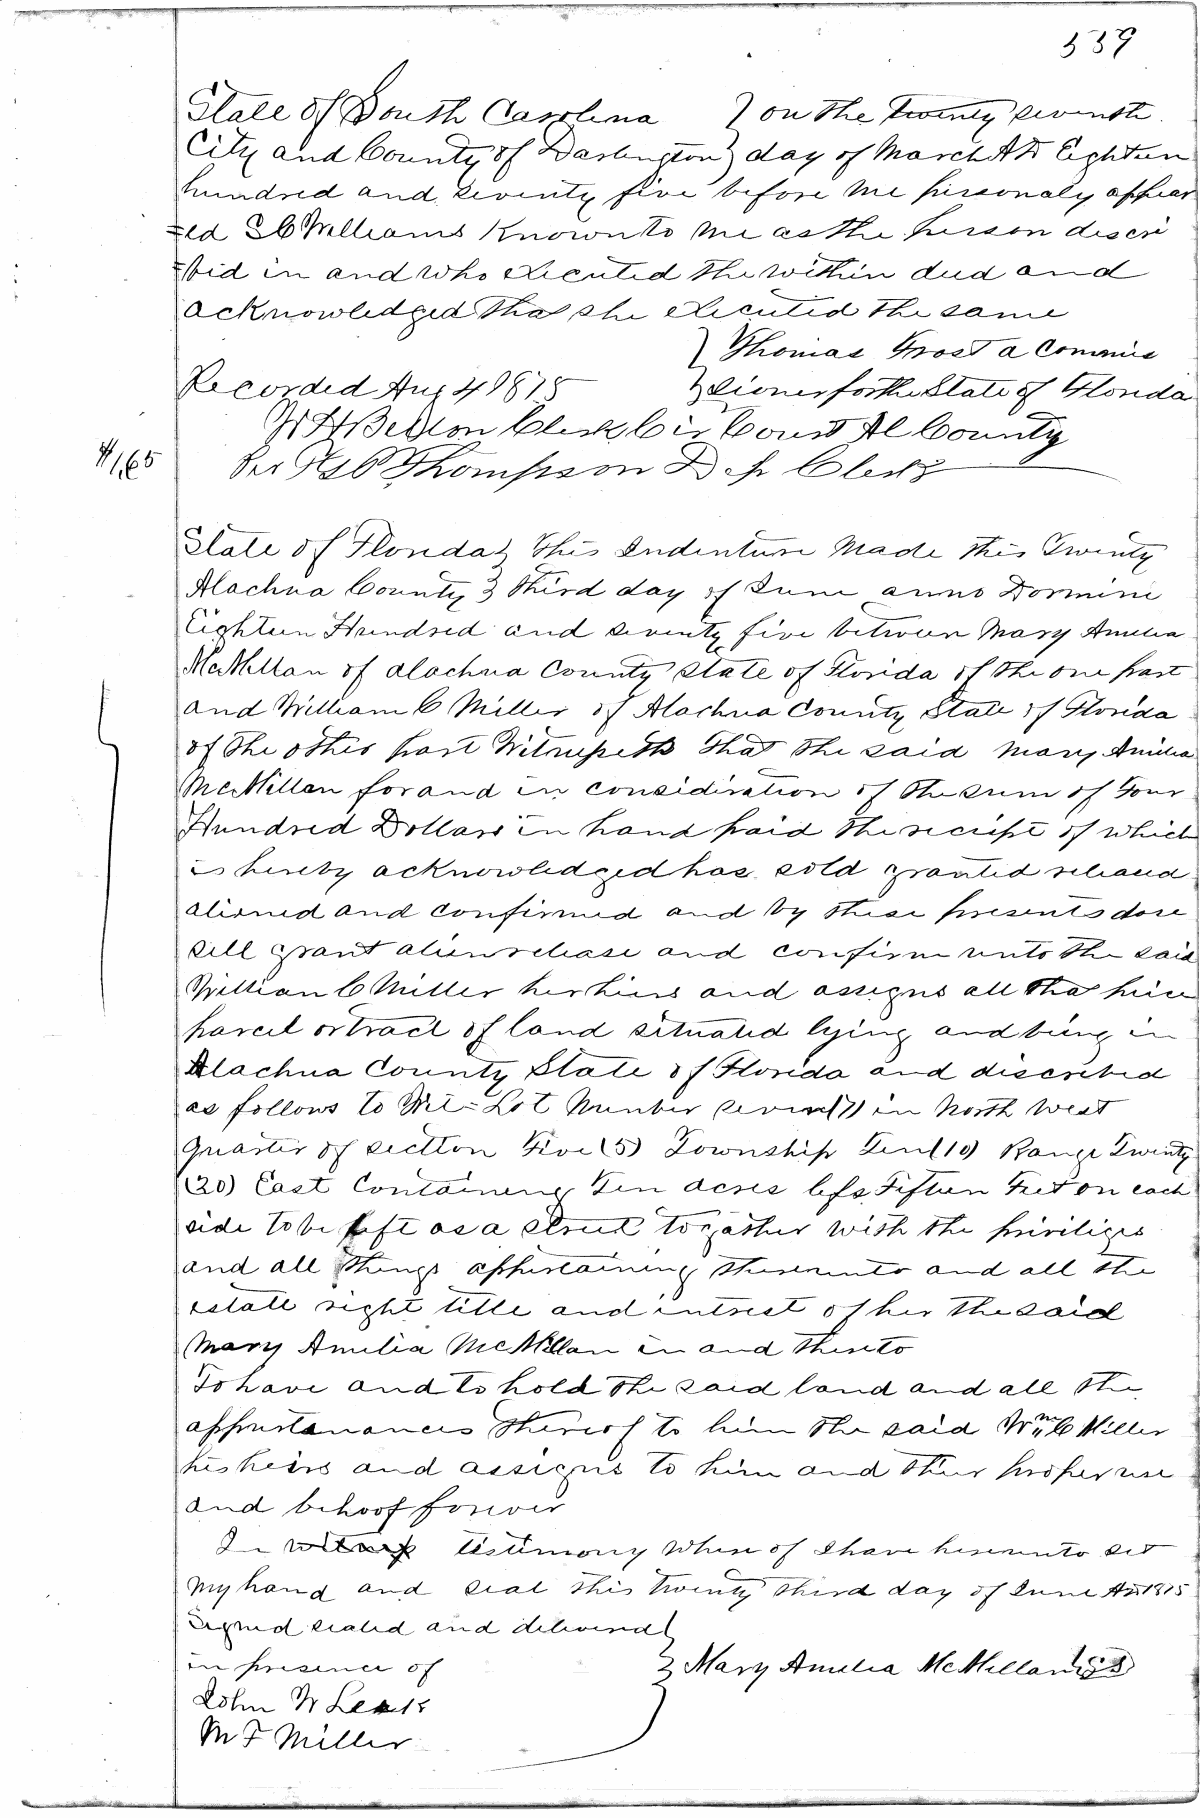 539
State of South Carolina } on the Twenty seventh
City and County of Darlington } day of March AD Eighteen
hundred and seventy five before me personaly appear
=ed S C Williams Known to me as the person descri
=bid in and who executed the within deed and
acknowledged that she executed the same
} Thomas Frost a Commis
Recorded Aug 4 1875 } sioner for the State of Florida
Clerk Cir Court Al County
$1,65 Per Thompson Dep Clerk
State of Florida } This Indenture Made this Twenty
Alachua County } third day of June anno Dormini
Eighteen Hundred and seventy five between Mary Amelia
McMillan of Alachua County State of Florida of the one part
and William C Miller of Alachua County State of Florida
of the other part Witnesseth that the said Mary Amelia
McMillan for and in consideration of the sum of Four
Hundred Dollars in hand paid the reciept of which
is hereby acknowledged has sold granted released
aliened and confirmed and by these presents dose
sell grant alien release and confirm unto the said
William C Miller her heirs and assigns all that peice
parcel or tract of land situated lying and being in
Alachua County State of Florida and discribed
as follows to Wit = Lot Number seven (7) in North West
quarter of section Five (5) Township Ten (10) Range Twenty
(20) East Containing Ten acres less Fifteen Feet on each
side to be left as a street togather with the priviliges
and all things appertaining thereunto and all the
estate right title and intrest of her the said
Mary Amelia McMillan in and thereto
To have and to hold the said land and all the
appurtanances thereof to him the said Wm C Miller
his heirs and assigns to him and their proper use
and behoof forever
In witness testimony where of I have hereunto set
my hand and seal this twenty third day of June AD 1875
Signed sealed and delivered }
in presence of } Mary Amelia McMillan
John W
M F Miller